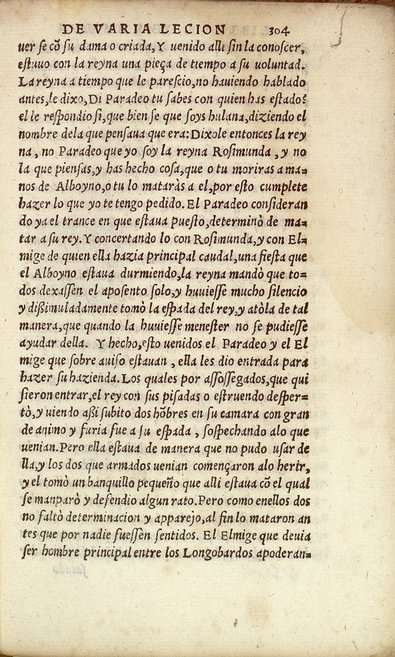 DE VARIA LECION 304
uer se cõ su dama o criada, Y uenido alli sin la conoscer,
estuuo con la reyna una pieça de tiempo a su uoluntad.
La reyna a tiempo que le parescio, no hauiendo hablado
antes, le dixo, Di Paradeo tu sabes con quien has estado?
el le respondio si, que bien se que soys hulana, diziendo el
nombre dela que pensaua que era: Dixole entonces la rey
na, no Paradeo que yo soy la reyna Rosimunda, y no
la que piensas, y has hecho cosa, que o tu moriras a ma=
nos de Alboyno, o tu lo mataràs a el, por esto cumplete
hazer lo que yo te tengo pedido. El Paradeo consideran
do ya el trance en que estaua puesto, determinò de ma=
tar a su rey. Y concertando lo con Rosimunda, y con El=
mige de quien ella hazia principal caudal, una fiesta que
el Alboyno estaua durmiendo, la reyna mandò que to=
dos dexassen el aposento solo, y huuiesse mucho silencio
y dißimuladamente tomò la espada del rey, y atòla de tal
manera, que quando la huuiesse menester no se pudiesse
ayudar della. Y hecho, esto uenidos el Paradeo y el El
mige que sobre auiso estauan, ella les dio entrada para
hazer su hazienda. Los quales por assossegados, que qui
sieron entrar, el rey con sus pisadas o estruendo desper=
tò, y uiendo aßi subito dos hõbres en su camara con gran
de animo y furia fue a su espada, sospechando alo que
uenian. Pero ella estaua de manera que no pudo usar de
lla, y los dos que armados uenian començaron alo herir,
y el tomò un banquillo pequeño que alli estaua cõ el qual
se manparò y defendio algun rato. Pero como enellos dos
no faltò determinacion y apparejo, al fin lo mataron an
tes que por nadie fuessen sentidos. El Elmige que deuia
ser hombre principal entre los Longobardos apoderan=